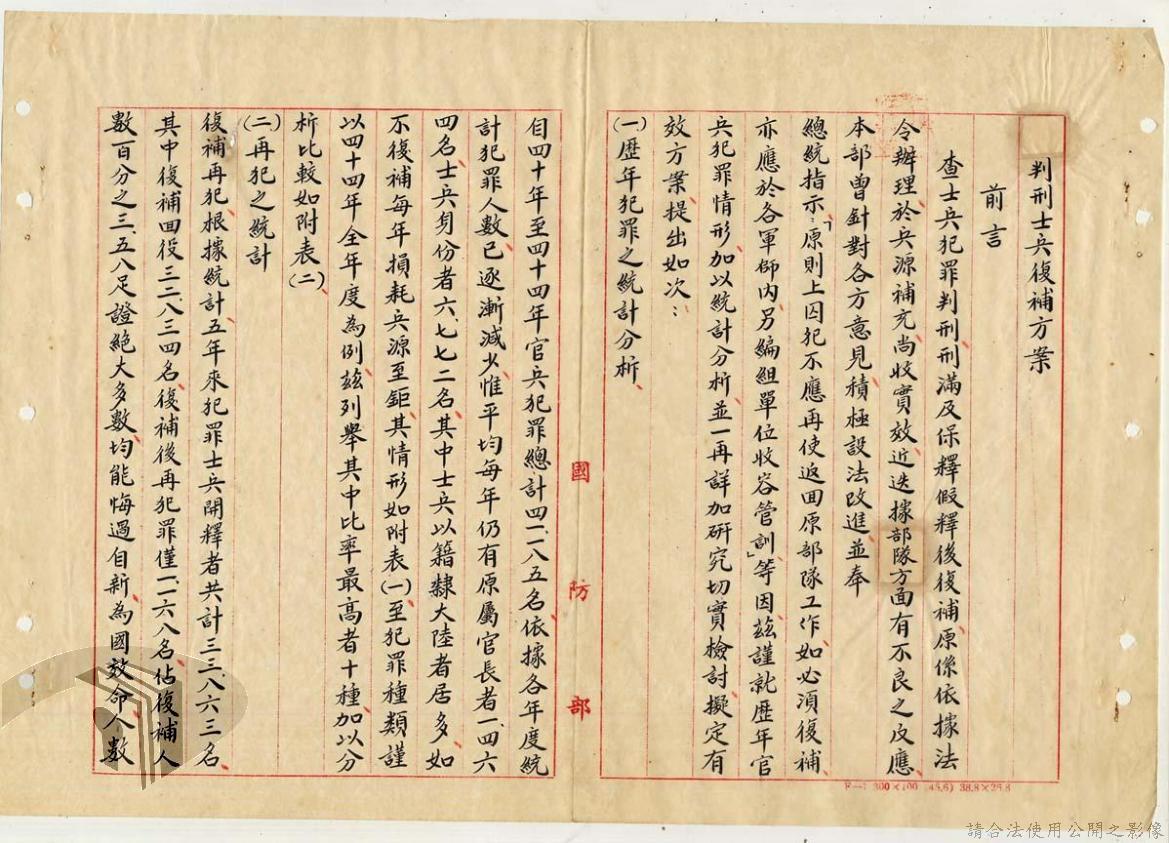 判刑士兵復補方案
前言
查士兵犯罪判刑刑滿及保釋假釋後復補、原係依據法
令辦理、於兵源補充、尚收實效、近迭據部隊方面有不良之反應、
本部曾針對各方意見、積極設法改進、並奉
總統指示：「原則上囚犯不應再使返回原部隊工作、如必須復補、
亦應於各軍師內、另編組單位收容管訓」等因、茲謹就歷年官
兵犯罪情形、加以統計分析、並一再詳加研究、切實檢討、擬定有
效方案、提出如次：
(一)歷年犯罪之統計分析、
自四十年至四十四年官兵犯罪總計四一、一八五名、依據各年度統
計犯罪人數、已逐漸減少、惟平均每年仍有原屬官長者一、四六
四名、士兵身份者六、七七二名、其中士兵以籍隸大陸者居多、如
不復補、每年損耗兵源至鉅、其情形如附表(一)、至犯罪種類、謹
以四十四年全年度為例、茲列舉其中比率最高者十種、加以分
析比較如附表(二)、
(二)再犯之統計
復補再犯、根據統計、五年來犯罪士兵開釋者共計三三、八六三名、
其中復補回役三二、八三四名、復補後再犯罪僅一、一六八名、佔復補人
數百分之三、五八、足證絕大多數、均能悔過自新、為國效命、人數
國防部
F—1 300×100 (45.6) 38.8×26.8
請合法使用公開之影像